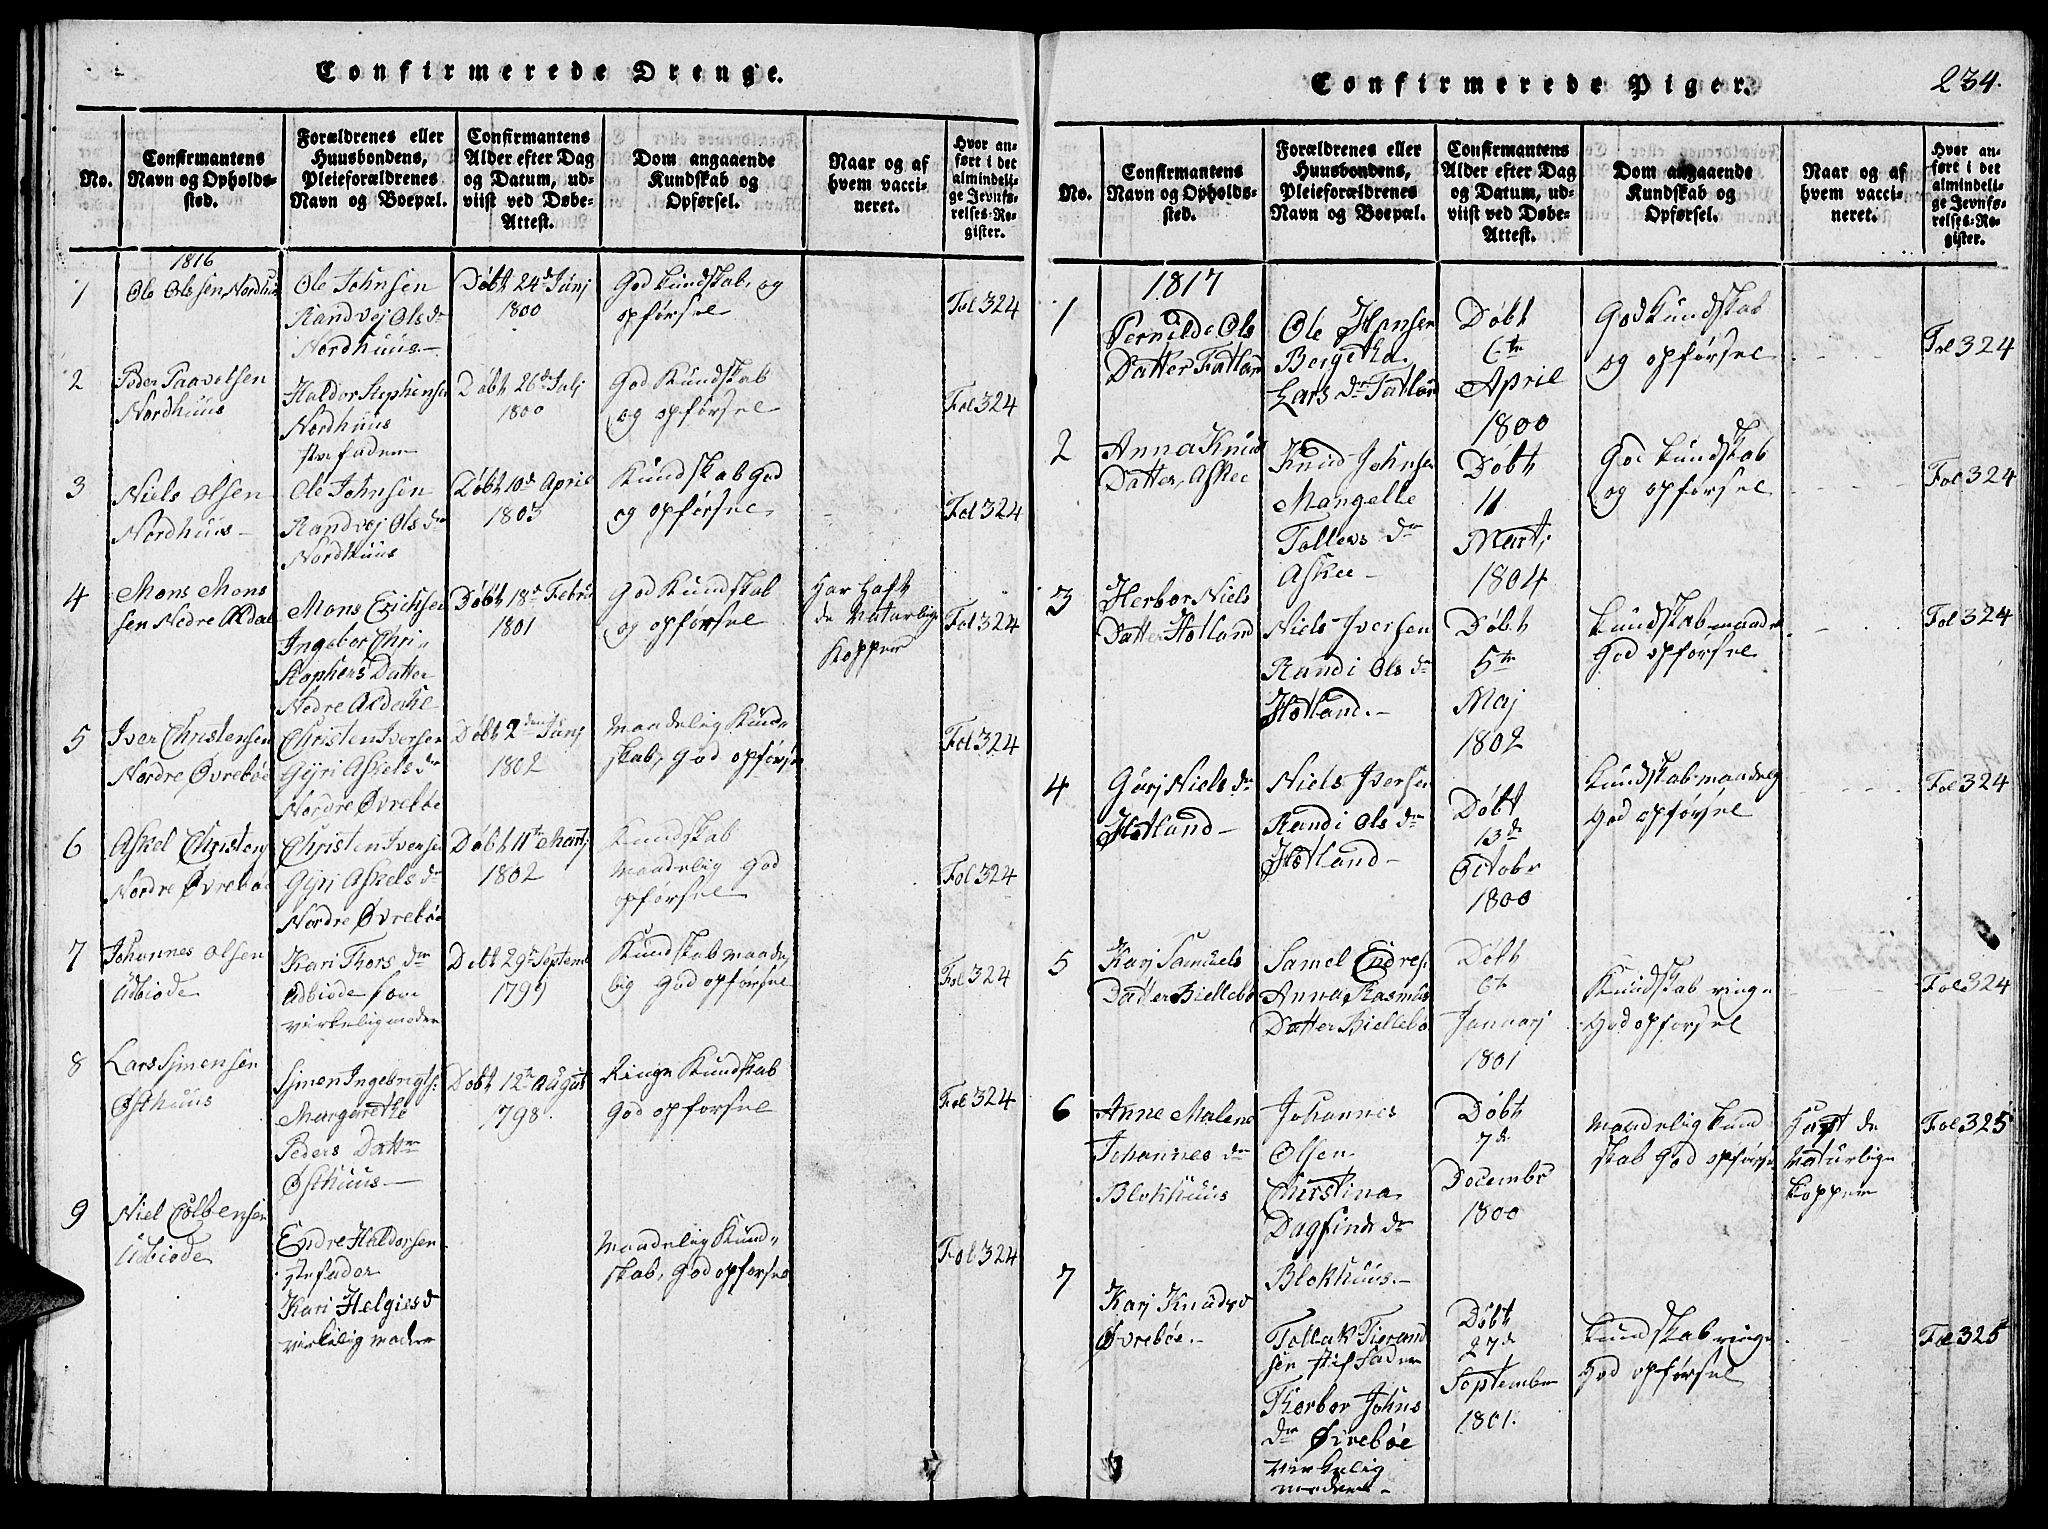 Confirmerede Drenge.
No.
Confirmantens
Navn og Opholds-
sted.
Forældrenes eller
Huusbondens,
Pleieforældrenes
Navn og Boepæl.
Confirmantens
Alder efter Dag
og Datum, ud-
viist ved Døbe-
Attest.
Dom angaaende
Kundskab og
Opførsel.
Naar og af
hvem vacci-
neret.
Hvor an-
ført i det
almindeli-
ge Jevnfø-
relses-Re-
gister.
1816
1
Ole Olsen Nordhuu
Ole Johnsen
Randvej Ols dr
Nordhuus
Døbt 24de Junj
1800
God Kundskab, og
opførsel
Fol 324
2
Peder Paavelsen
Nordhuus
Haldor Stephensen
Nordhuus
steffader
Døbt 26de Julj
1800
God Kundskab
og opførsel
Fol 324
3
Niels Olsen
Nordhuus
Ole Johnsen
Randvej Ols dr
Nordhuus
Døbt 10de April
1803
Kundskab God
og opførsel
Fol 324
4
Mons Mons
sen Nedre
Mons Erichsen
Ingebor Chri
stophers Datter
Nedre
Døbt 18de Febru
1801
God Kundskab
og opførsel
Har Haft
de Naturlige
Kopper
Fol 324
5
Iver Christensen
Nordre Øvrebøe
Christen Iversen
Gyri Askels dr
Nordre Øvrebøe
Døbt 2den Junj
1802
Maadelig Kund-
skab, God opførsel
Fol 324
6
Askel Christens
Nordre Øvrebøe
Christen Iversen
Gyri Askels dr
Nordre Øvrebøe
Døbt 11te Martj
1802
Kundskab
Maadelig God
opførsel
Fol 324
7
Johannes Olsen
Udbiode
Kari Thors dr
Udbiode
virkelig moder
Døbt 29de Septemb
1799
Kundskab maade
lig God opførsel
Fol 324
8
Lars Sjmensen
Østhuus
Sjmen Ingebrigts:
Margarethe
Peders Datter
Østhuus
Døbt 12te August
1798
Ringe Kundskab
God opførsel
Fol 324
9
Niel Colbensen
Udbiode
Endre Haldorsen
stefader
Kari Helgies d
virkelig moder
Maadelig Kund-
skab, God opførsel
Fol 324
Confirmerede Piger.
234.
No.
Confirmantens
Navn og Opholds-
sted.
Forældrenes eller
Huusbondens,
Pleieforældrenes
Navn og Boepæl.
Confirmantens
Alder efter Dag
og Datum, ud-
viist ved Døbe-
Attest.
Dom angaaende
Kundskab og
Opførsel.
Naar og af
hvem vacci-
neret.
Hvor an-
ført i det
almindeli-
ge Jevnfø-
relses-Re-
gister.
1817
1
Pernilde Ols
Datter Fatland
Ole Hansen
Bergetha
Lars dr Fatland
Døbt
6te
April
1800
God Kundskab
og opførsel
Fol 324
2
Anna Knud
Datter Askee
Knud Johnsen
Mangelle
Tollevs dr
Askee
Døbt
11
Martj
1804
God Kundskab
og opførsel
Fol 324
3
Herbor Niels
Datter Hotland
Niels Iversen
Randi Ols dr
Hotland
Døbt
5te
Maj
1802
Kundskab maade
God opførsel
Fol 324
4
Gurj Niels dr
Hotland
Niels Iversen
Randi Ols dr
Hotland
Døbt
13de
Octobr
1800
Kundskab maadelig
God opførsel
Fol 324
5
Karj Samuels
Datter Biellebø
Samel Endres:
Anna Rasmus
Datter Biellebø
Døbt
6te
Januarj
1801
Kundskab ringe
God opførsel
Fol 324
6
Anne Malene
Johannes dr
Blokhuus
Johannes
Olsen
Christina
Dagfinds dr
Blokhuus
Døbt
7de
Decembr
1800
Maadelig Kund
skab God opførsel
Haft de
Naturlige
Kopper
Fol 325
7
Karj Knuds d
Øvrebøe
Tollak Tierand
sen stiffader
Thorbor Johns
dr Øvrebøe
virkelig
moder
Døbt
27de
September
1801
Kundskab ringe
God opførsel
Fol 325